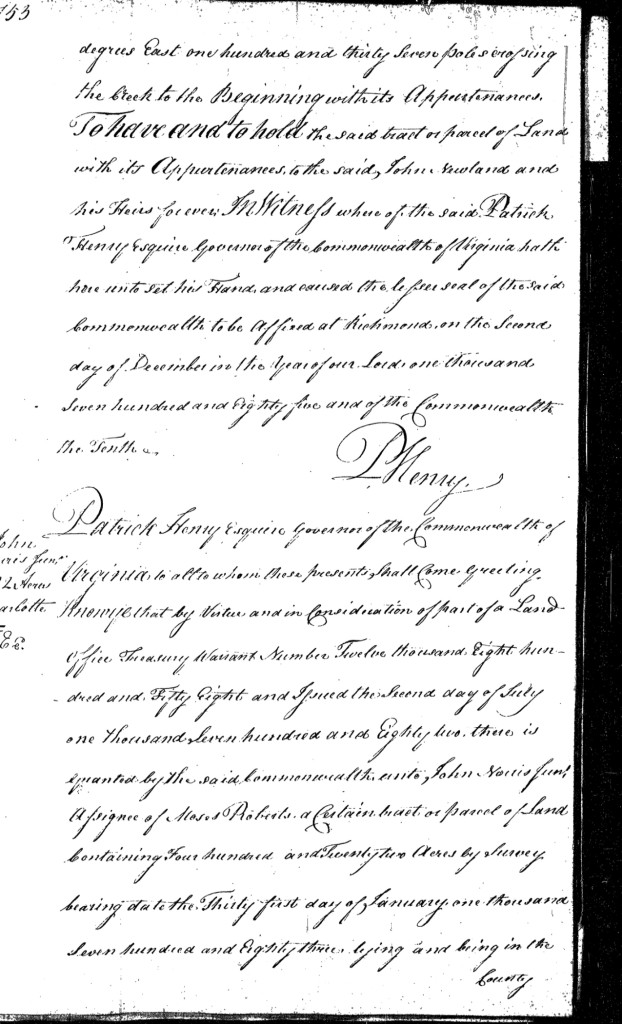 753
degrees East one hundred and thirty Seven poles crossing
the Creek to the Beginning with its Appurtenances.
To have and to hold the said tract or parcel of Land
with its Appurtenances, to the said, John Newland and
his Heirs forever. In Witness where of, the said Patrick
Henry Esquire Governor of the Commonwealth of Virginia hath
here unto set his Hand, and caused the lesser seal of the said
Commonwealth to be Affixed at Richmond, on the Second
day of December in the Year of our Lord one thousand
Seven hundred and Eighty five and of the Commonwealth
the Tenth
P. Henry.
Patrick Henry Esquire Governor of the Commonwealth of
Virginia, to all to whom these presents, Shall Come Greeting.
Know ye that by Virtue and in Consideration of part of a Land
Office Treasury Warrant Number Twelve thousand Eight hun-
dred and Fifty Eight and Issued the Second day of July
one thousand, Seven hundred and Eighty two, there is
granted by the said Commonwealth unto, John Norris Junr.
Assignee of Moses Roberts, a Certain tract or parcel of Land
Containing Four hundred and Twenty two Acres by Survey
bearing date the Thirty first day of, January one thousand
Seven hundred and Eighty three, lying and being in the
County
John
rris Junr.
2 Acres
arlotte
Ed.